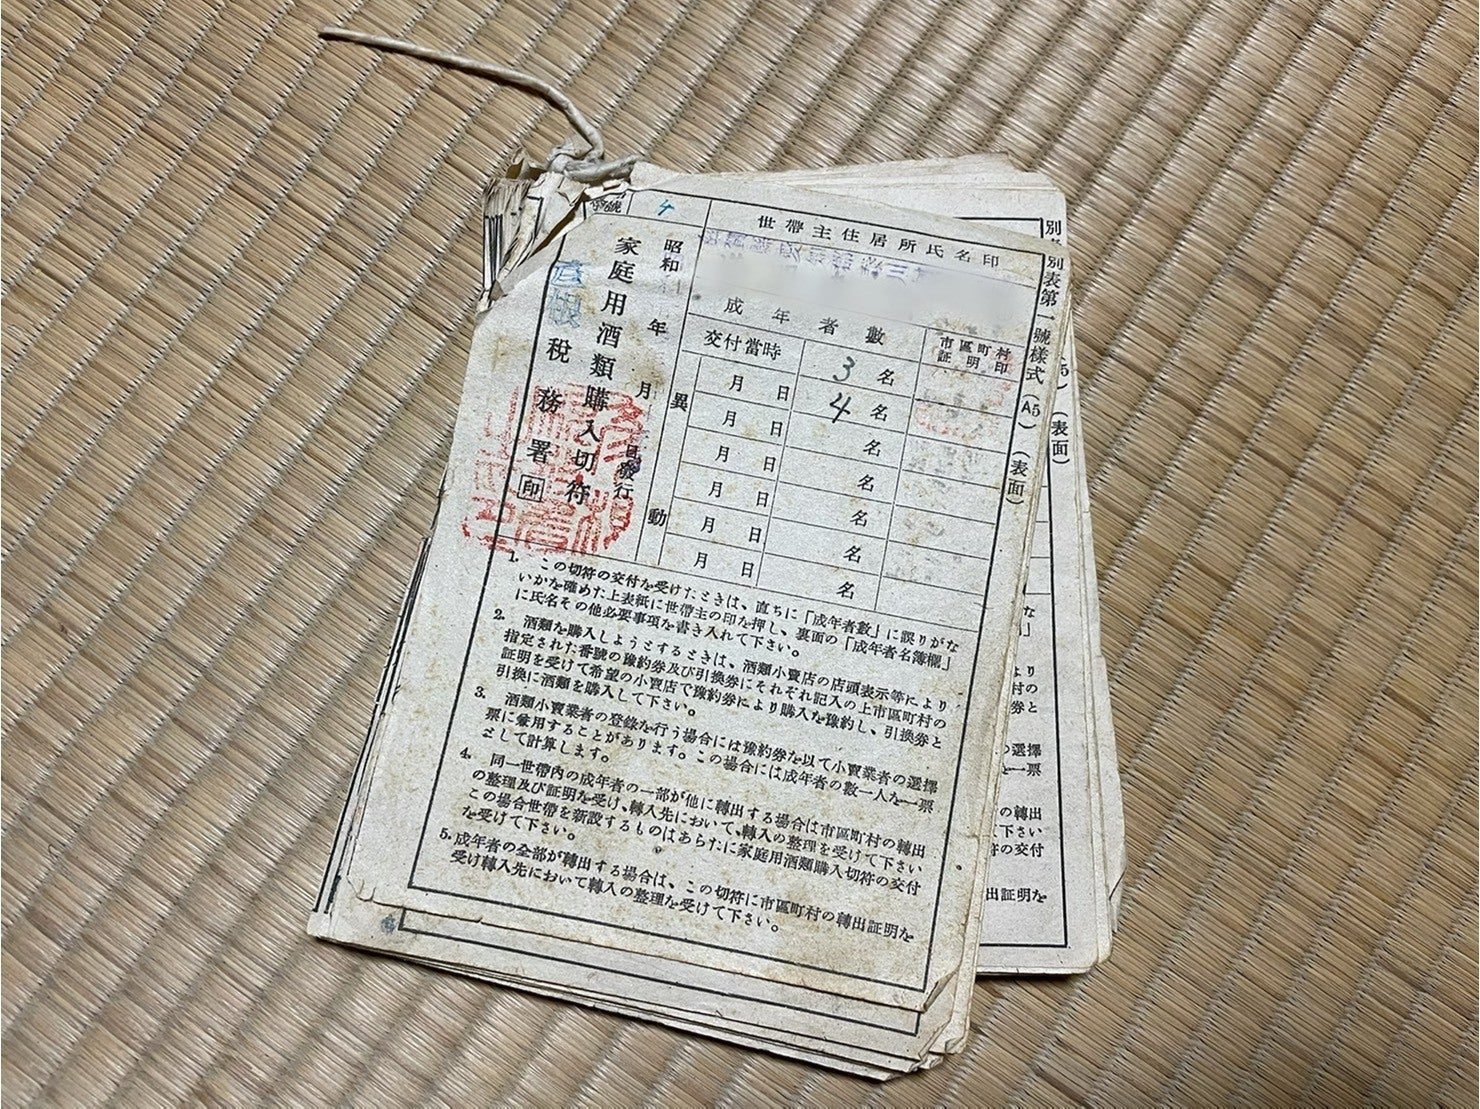 號 4
世帶主住居所氏名印
昭和 年 月 日發行
家庭用酒類購入切符
彦根 税務署 印
異動
成年者數
市區町村
証明印
交付當時 3名
月 日 4名
月 日 名
月 日 名
月 日 名
月 日 名
月 日 名
別表第一號樣式 (A5) (表面)
1. この切符の交付を受けたときは、直ちに「成年者數」に誤りがな
いかを確めた上表紙に世帶主の印を押し、裏面の「成年者名簿欄」
に氏名その他必要事項を書き入れて下さい。
2. 酒類を購入しようとするときは、酒類小賣店の店頭表示等により
指定された番號の豫約券及び引換券にそれぞれ記入の上市區町村の
証明を受けて希望の小賣店で豫約券により購入を豫約し、引換券と
引換に酒類を購入して下さい。
3. 酒類小賣業者の登錄を行う場合には豫約券を以て小賣業者の選擇
票に兼用することがあります。この場合には成年者の數一人を一票
として計算します。
4. 同一世帶內の成年者の一部が他に轉出する場合は市區町村の轉出
の整理及び証明を受け、轉入先において、轉入の整理を受けて下さい
この場合世帶を新設するものはあらたに家庭用酒類購入切符の交付
を受けて下さい。
5. 成年者の全部が轉出する場合は、この切符に市區町村の轉出証明を
受け轉入先において轉入の整理を受けて下さい。
別
(表面)
な
」
より
村の
券と
の選擇
一票
の轉出
下さい
の交付
出証明を